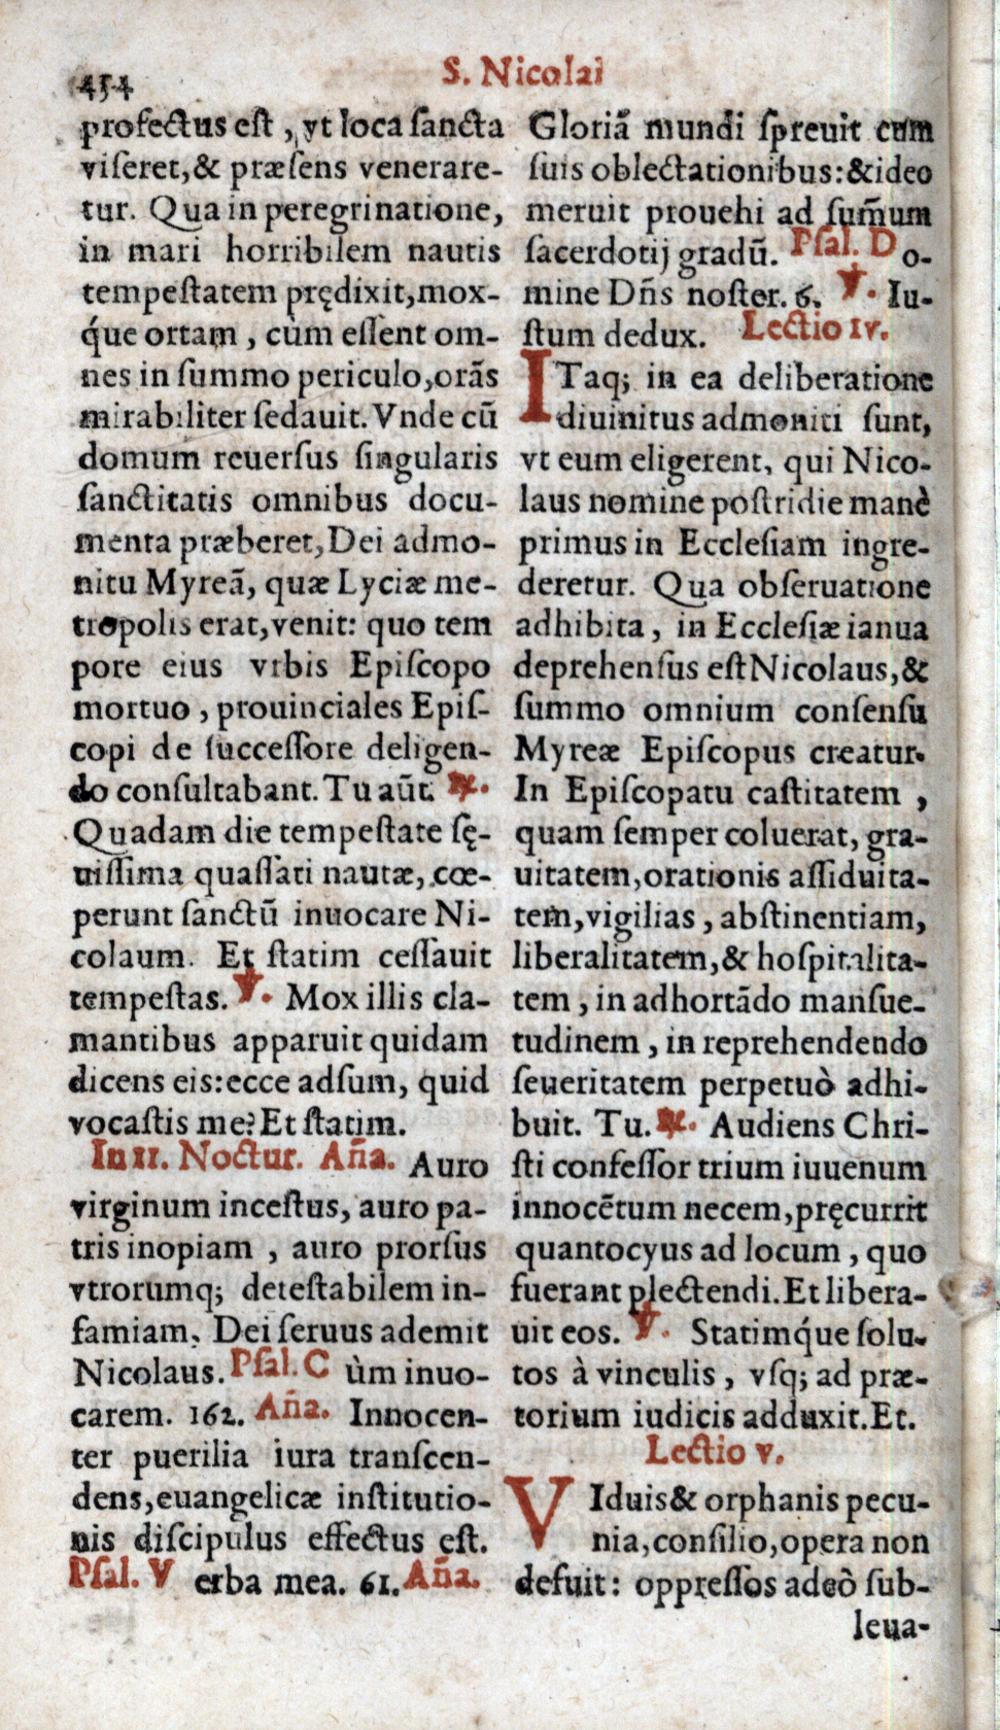 454
S. Nicolai
profectus est, vt loca sancta
viseret, & præsens venerare-
tur. Qua in peregrinatione,
in mari horribilem nautis
tempestatem prędixit, mox-
q́ue ortam, cùm essent om-
nes in summo periculo, orãs
mirabiliter sedauit. Vnde cũ
domum reuersus singularis
sanctitatis omnibus docu-
menta præberet, Dei admo-
nitu Myreã, quæ Lyciæ me-
tropolis erat, venit: quo tem
pore eius vrbis Episcopo
mortuo, prouinciales Epis-
copi de successore deligen-
do consultabant. Tu aũt. ℟.
Quadam die tempestate sę-
uissima quassati nautæ, cœ-
perunt sanctũ inuocare Ni-
colaum. Et statim cessauit
tempestas. ℣. Mox illis cla-
mantibus apparuit quidam
dicens eis: ecce adsum, quid
vocastis me? Et statim.
In II. Noctur. Añа. Auro
virginum incestus, auro pa-
tris inopiam, auro prorsus
vtrorumq; detestabilem in-
famiam, Dei seruus ademit
Nicolaus. Psal. C ùm inuo-
carem. 162. Aña. Innocen-
ter puerilia iura transcen-
dens, euangelicæ institutio-
nis discipulus effectus est.
Psal. V erba mea. 61. Aña.
Gloriã mundi spreuit cum
suis oblectationibus: & ideo
meruit prouehi ad sum̃um
sacerdotij gradũ. Psal. D o-
mine Dñs noster. 6. ℣. Iu-
stum dedux. Lectio IV.
ITaq; in ea deliberatione
diuinitus admoniti sunt,
vt eum eligerent, qui Nico-
laus nomine postridie manè
primus in Ecclesiam ingre-
deretur. Qua obseruatione
adhibita, in Ecclesiæ ianua
deprehensus est Nicolaus, &
summo omnium consensu
Myreæ Episcopus creatur.
In Episcopatu castitatem,
quam semper coluerat, gra-
uitatem, orationis assiduita-
tem, vigilias, abstinentiam,
liberalitatem, & hospitalita-
tem, in adhortãdo mansue-
tudinem, in reprehendendo
seueritatem perpetuò adhi-
buit. Tu. ℟. Audiens Chri-
sti confessor trium iuuenum
innocẽtum necem, pręcurrit
quantocyus ad locum, quo
fuerant plectendi. Et libera-
uit eos. ℣. Statimq́ue solu-
tos à vinculis, vsq; ad præ-
torium iudicis adduxit. Et.
Lectio V.
VIduis & orphanis pecu-
nia, consilio, opera non
defuit: oppressos adeò sub-
leua-